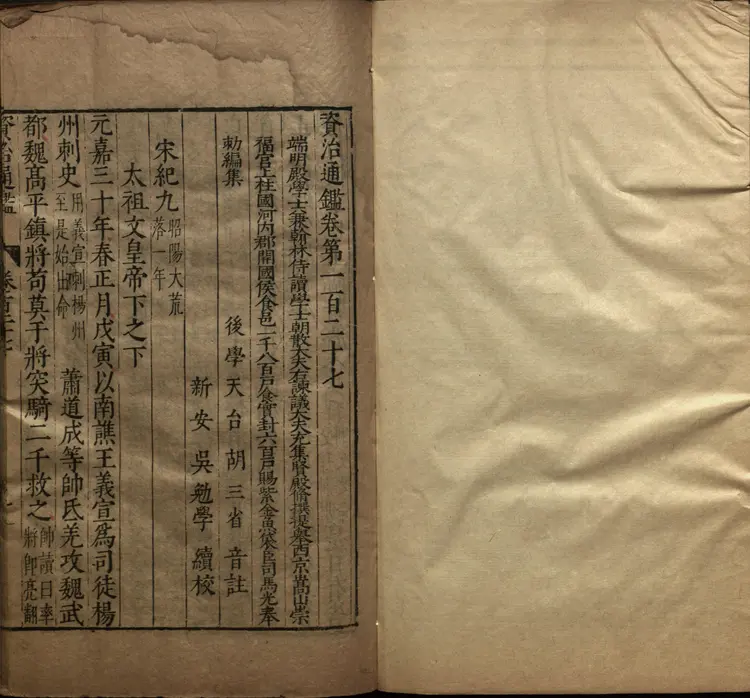 資治通鑑卷第一百二十七
端明殿學士兼翰林侍讀學士朝散大夫右諫議大夫充集賢殿脩撰提舉西京嵩山崇
福宫上柱國河内郡開國侯食邑二千八百戶食實封六百戶賜紫金魚袋臣司馬光奉
勑編集
後學天台胡三省音註
新安吳勉學續校
宋紀九昭陽大荒
落一年
太祖文皇帝下之下
元嘉三十年春正月戊寅以南譙王義宣爲司徒楊
州刺史用義宣刺楊州
至是始出命蕭道成等帥氐羌攻魏武
都魏高平鎮將苟莫于將突騎二千救之帥讀曰率
將卽亮翻
資治通鑑
卷百二十七